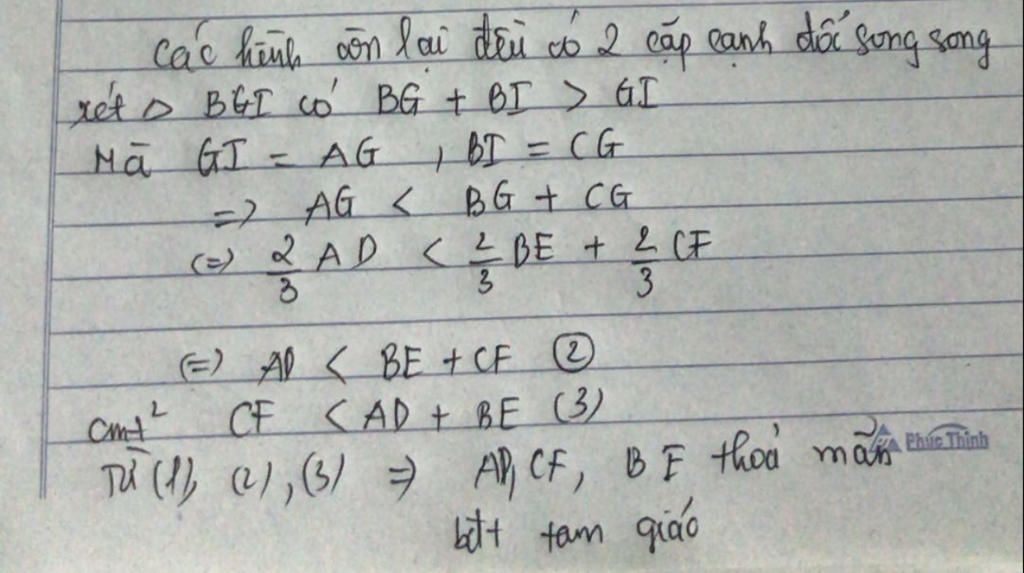 các hình còn lại đều có 2 cặp cạnh đối song song
xét △ BGI có BG + BI > GI
Mà GI = AG , BI = CG
=> AG < BG + CG
(=) 2/3 AD < 2/3 BE + 2/3 CF
(=) AD < BE + CF ②
cmt² CF < AD + BE (3)
Từ (1), (2), (3) => AD, CF, BE thoả mãn
Phúc Thịnh
bđt tam giác